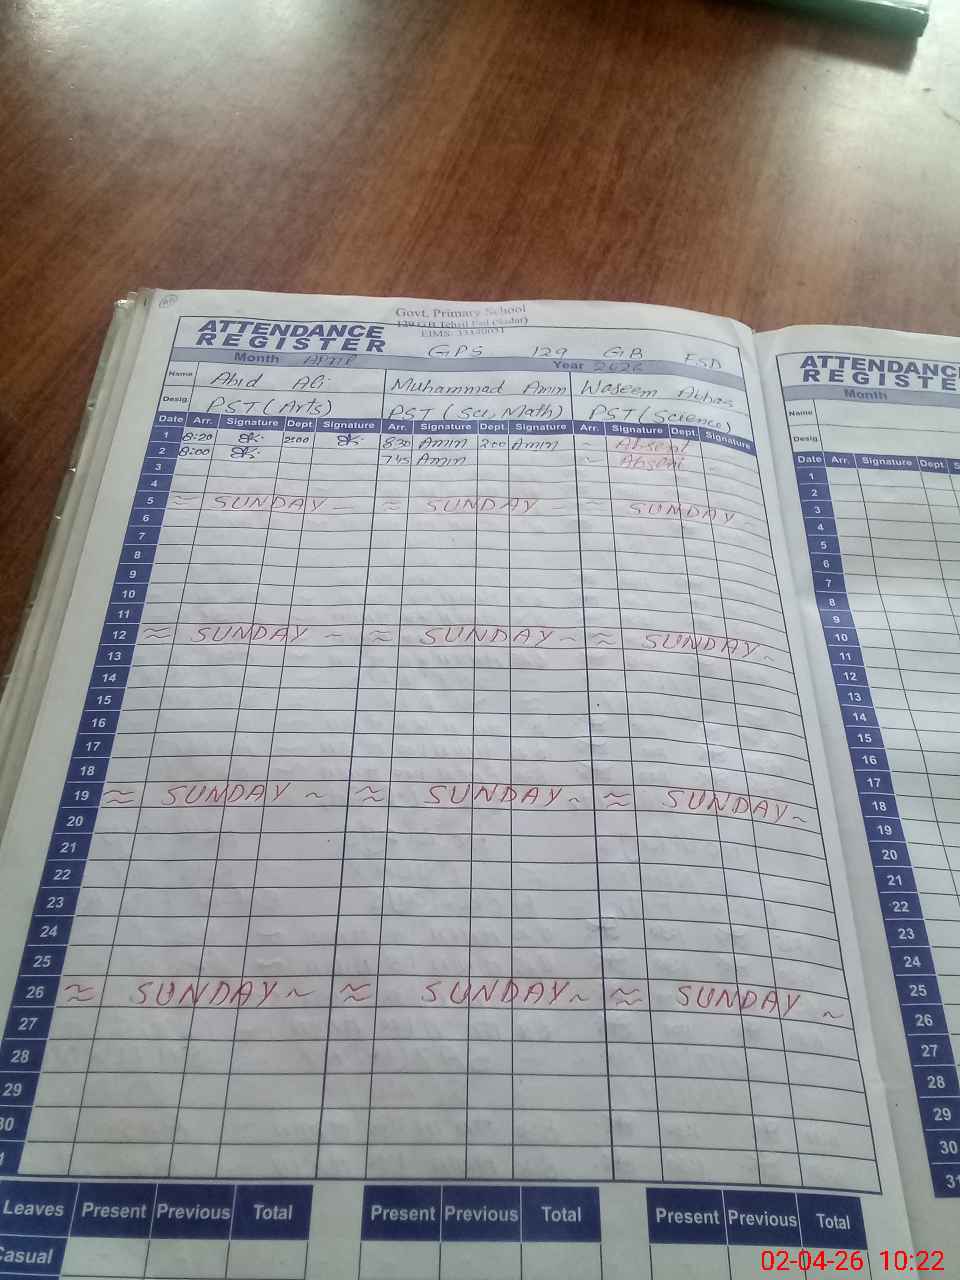 Govt. Primary School
129 G.B Tehsil Fsd (Sadar)
ATTENDANCE
REGISTER
GPS 129 GB FSD
Month April Year 2026
Name Abid Ali Muhammad Amin Waseem Abbas
Desig. PST (Arts) PST (Sci, Math) PST (Science)
Date Arr. Signature Dept. Signature Arr. Signature Dept. Signature Arr. Signature Dept. Signature
1 8:20 2:00 8:30 Amin 2:00 Amin ~ Absent
2 8:00 7:45 Amin ~ Absent
3
4
5 SUNDAY SUNDAY SUNDAY
6
7
8
9
10
11
12 SUNDAY SUNDAY SUNDAY
13
14
15
16
17
18
19 SUNDAY SUNDAY SUNDAY
20
21
22
23
24
25
26 SUNDAY SUNDAY SUNDAY
27
28
29
30
Leaves Present Previous Total Present Previous Total Present Previous Total
Casual
ATTENDANC
REGISTE
Month
Name
Desig.
Date Arr. Signature Dept. S
1
2
3
4
5
6
7
8
9
10
11
12
13
14
15
16
17
18
19
20
21
22
23
24
25
26
27
28
29
30
31
02-04-26 10:22